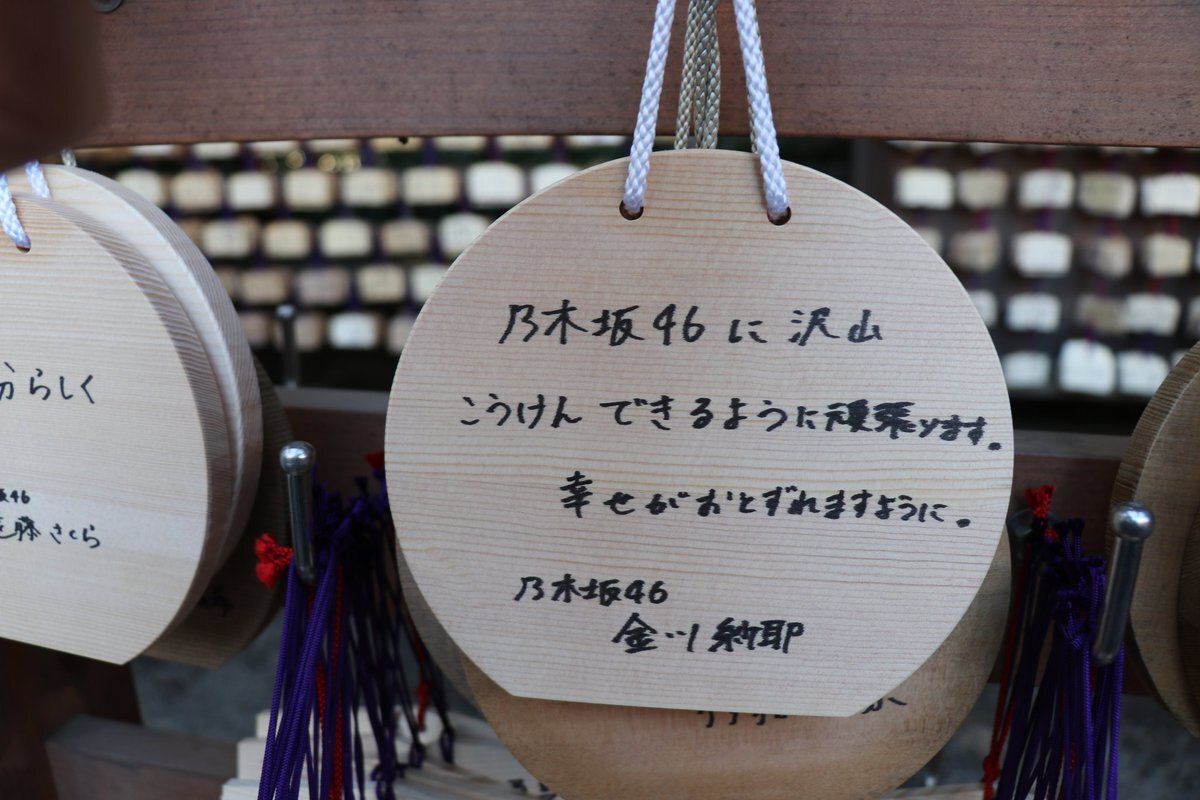 分らしく
坂46
遠藤さくら
乃木坂46に沢山
こうけんできるように頑張ります。
幸せがおとずれますように。
乃木坂46
金川紗耶